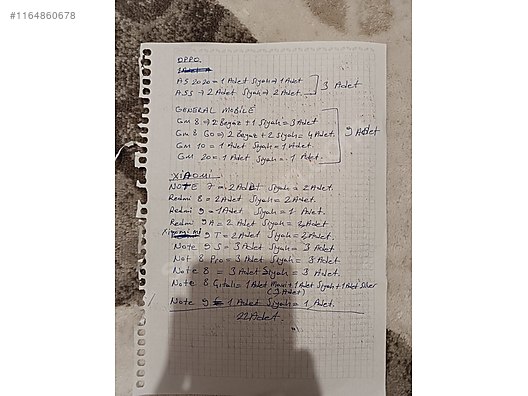 #1164860678
OPPO
A5 2020 = 1 Adet Siyah → 1 Adet
A5S → 2 Adet Siyah → 2 Adet.
3 Adet
GENERAL MOBILE
GM 8 → 2 Beyaz + 1 Siyah = 3 Adet
GM 8 GO → 2 Beyaz + 2 Siyah = 4 Adet.
9 Adet
GM 10 = 1 Adet Siyah = 1 Adet.
GM 20 = 1 Adet Siyah = 1 Adet.
XİAOMİ
NOTE 7 = 2 Adet Siyah = 2 Adet.
Redmi 8 = 2 Adet Siyah = 2 Adet.
Redmi 9 = 1 Adet Siyah = 1 Adet.
Redmi 9A = 2 Adet Siyah = 2 Adet.
Xiaomi mi 9T = 2 Adet Siyah = 2 Adet.
Note 9 S = 3 Adet Siyah = 3 Adet.
Not 8 Pro = 3 Adet Siyah = 3 Adet.
Note 8 = 3 Adet Siyah = 3 Adet.
Note 8 = 1 Adet Mavi + 1 Adet Siyah + 1 Adet Silver
(3 Adet)
Note 9 = 1 Adet Siyah = 1 Adet.
22 Adet.
sahibinden.com